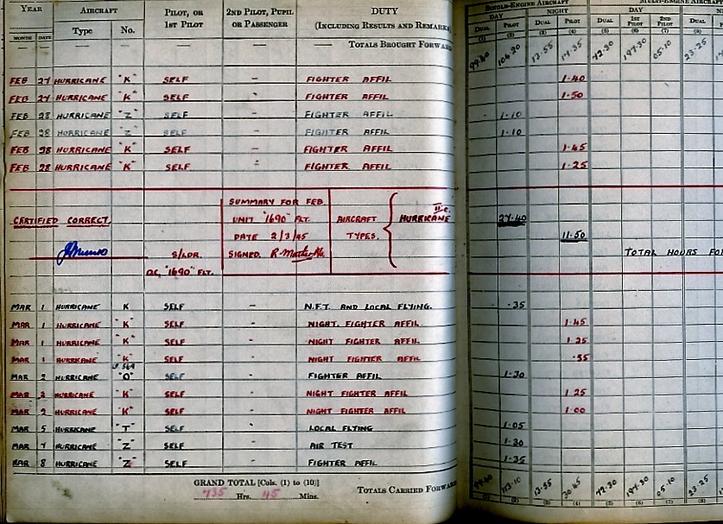 YEAR AIRCRAFT PILOT, OR 1ST PILOT 2ND PILOT, PUPIL OR PASSENGER DUTY (INCLUDING RESULTS AND REMARKS SINGLE-ENGINE AIRCRAFT
MONTH DATE Type No. DAY NIGHT DAY
DUAL PILOT DUAL PILOT DUAL 1ST PILOT 2ND PILOT DUAL
(1) (2) (3) (4) (5) (6) (7) (8)
— — — — — — TOTALS BROUGHT FORWARD 99.40 104.20 13.55 17.35 72.30 197.30 05.10 23.25
FEB 27 HURRICANE "K" SELF - FIGHTER AFFIL 1.40
FEB 27 HURRICANE "K" SELF - FIGHTER AFFIL 1.50
FEB 28 HURRICANE "Z" SELF - FIGHTER AFFIL 1.10
FEB 28 HURRICANE "Z" SELF - FIGHTER AFFIL 1.10
FEB 28 HURRICANE "K" SELF - FIGHTER AFFIL 1.45
FEB 28 HURRICANE "K" SELF - FIGHTER AFFIL 1.25
SUMMARY FOR FEB.
CERTIFIED CORRECT. UNIT "1690" FLT. AIRCRAFT HURRICANE II c. 27.40
DATE 2/3/45 TYPES. 11.50
S/LDR. SIGNED. TOTAL HOURS FO
O.C. "1690" FLT.
MAR 1 HURRICANE K SELF - N.F.T. AND LOCAL FLYING. .35
MAR 1 HURRICANE "K" SELF - NIGHT FIGHTER AFFIL 1.45
MAR 1 HURRICANE "K" SELF - NIGHT FIGHTER AFFIL 1.25
MAR 1 HURRICANE "K" SELF - NIGHT FIGHTER AFFIL .55
MAR 2 HURRICANE "O" SELF - FIGHTER AFFIL 1.30
MAR 2 HURRICANE "K" SELF - NIGHT FIGHTER AFFIL 1.25
MAR 2 HURRICANE "K" SELF - NIGHT FIGHTER AFFIL 1.00
MAR 5 HURRICANE "T" SELF - LOCAL FLYING 1.05
MAR 7 HURRICANE "Z" SELF - AIR TEST 1.30
MAR 8 HURRICANE "Z" SELF - FIGHTER AFFIL 1.35
GRAND TOTAL [Cols. (1) to (10)]
735 Hrs. 45 Mins. TOTALS CARRIED FORWARD 99.40 13.55 72.30 197.30 05.10 23.25
(1) (2) (3) (4) (5) (6) (7) (8)